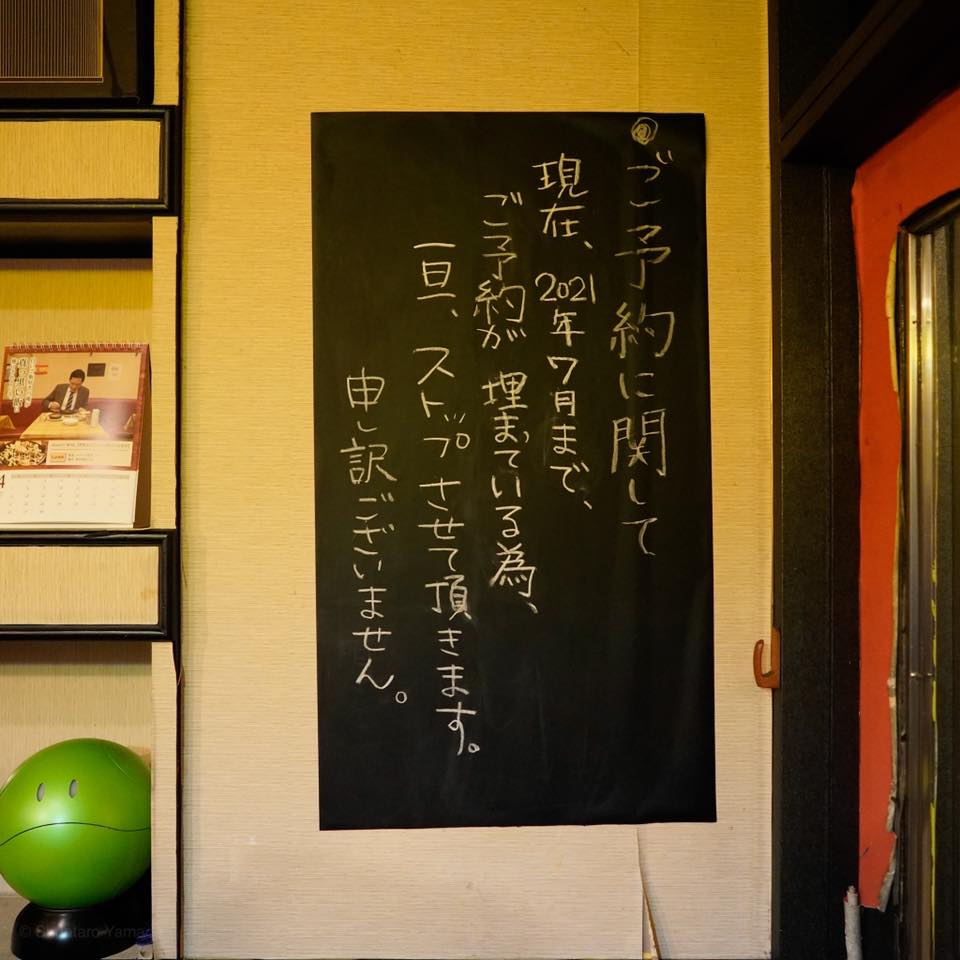 ◎ご予約に関して
現在、2021年7月まで、
ご予約が埋まている為、
一旦、ストップさせて頂きます。
申し訳ございません。
4